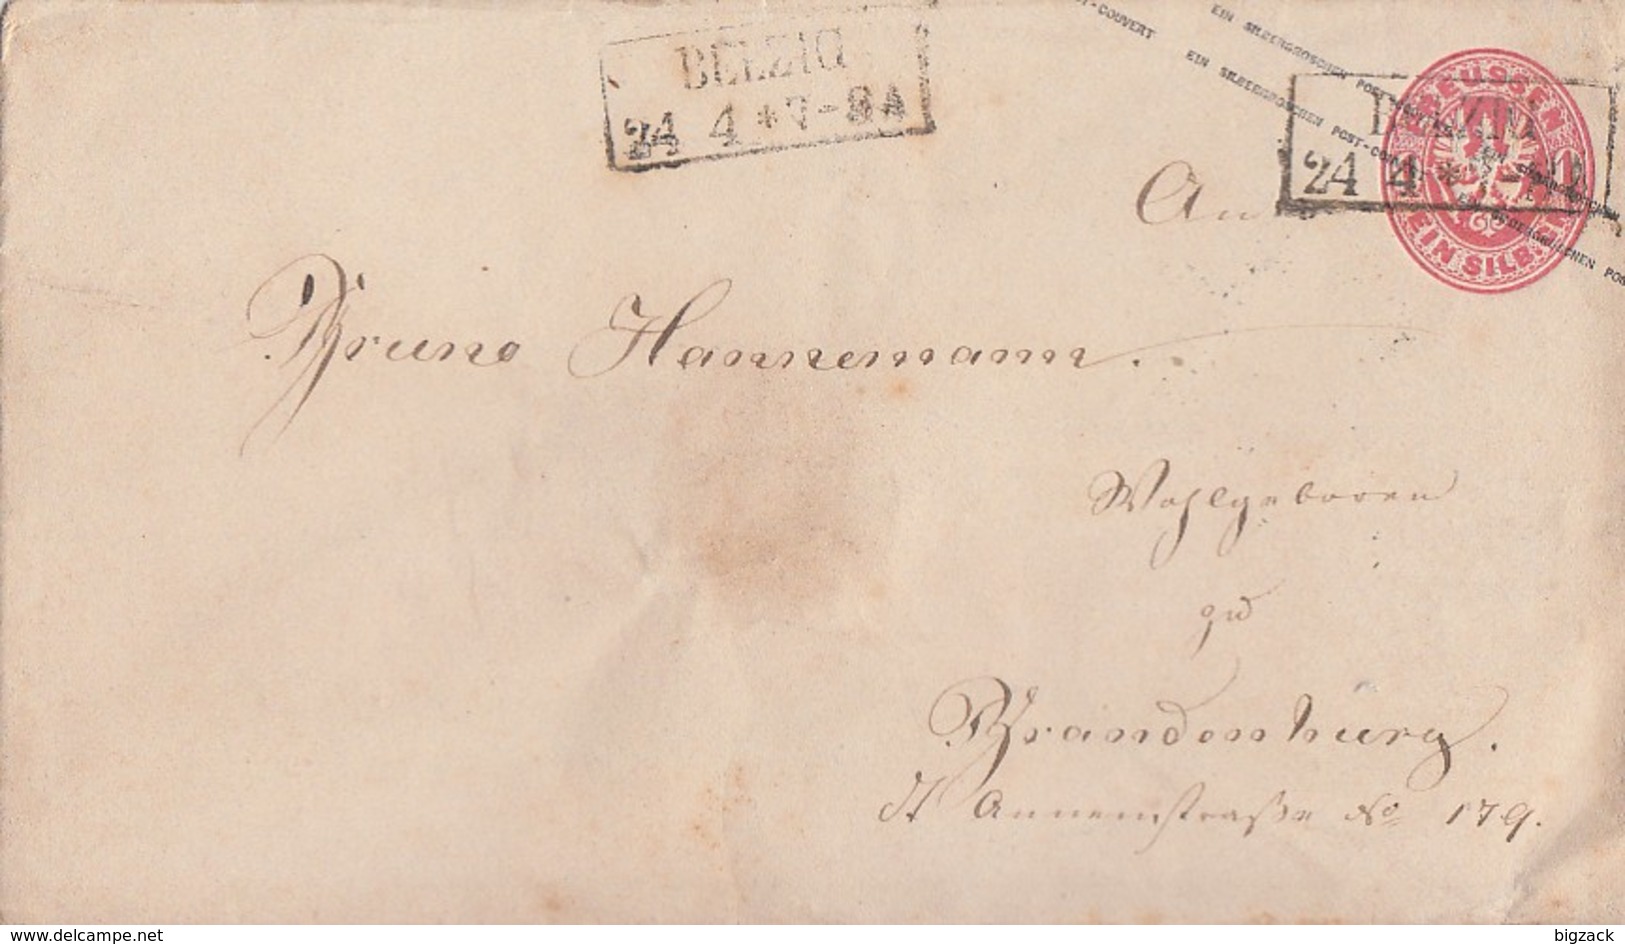 BELZIG
24 4 * 7-8 A
POST-COUVERT EIN SILBERGROSCHEN POST-COUVERT EIN SILBERGROSCHEN POS
EIN SILBERGROSCHEN POST-COUVERT EIN SILBERGROSCHEN
PREUSSEN
1 1
EIN SILBERGR.
BELZIG
24 4 * 7-
An
Bruno Hannemann.
Wohlgeboren
zu
Brandenburg.
St Annenstraße No 179.
www.delcampe.net
bigzack